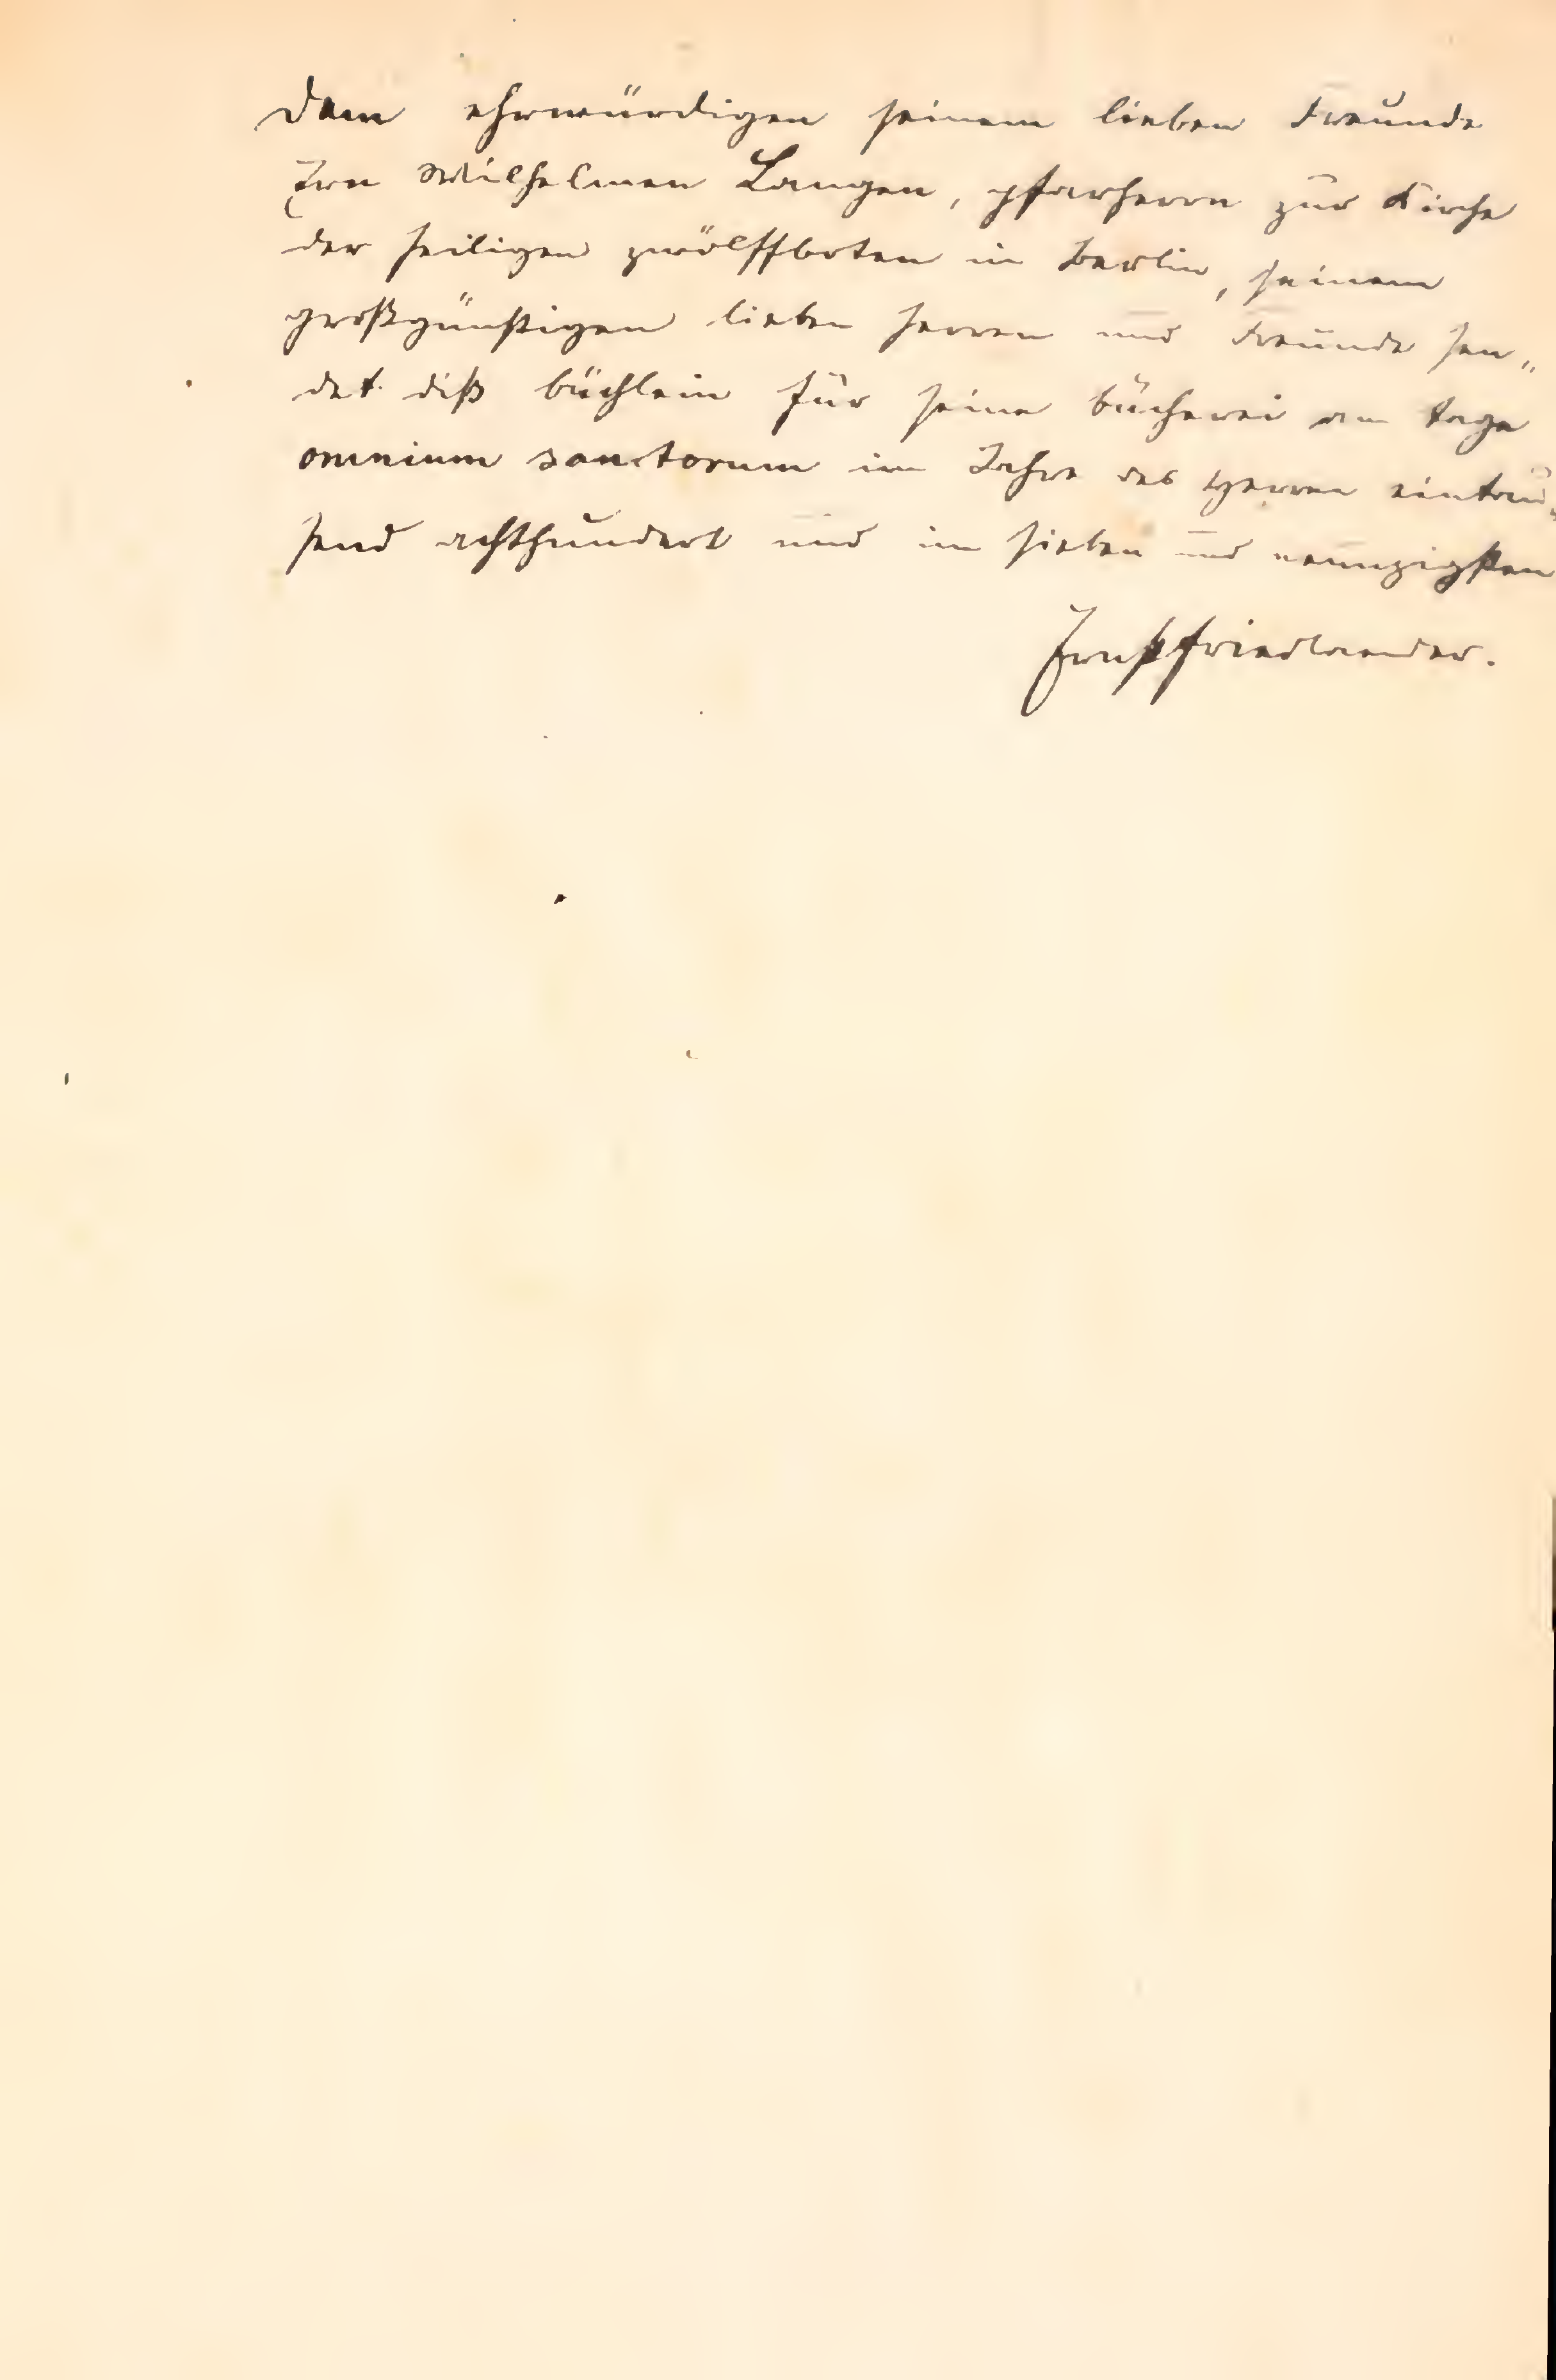 Dem ehrwürdigen seinem lieben Freunde
Ern Wilhelmen Langen, pfarherrn zur Kirche
der heiligen zwölffboten in Berlin, seinem
großgünstigen lieben herren und Freunde sen„
det diß büchlein für seine bücherei am tage
omnium sanctorum im Jahre des Herren eintau„
send achthundert und im sieben und neunzigsten
Ernst Friedlaender.